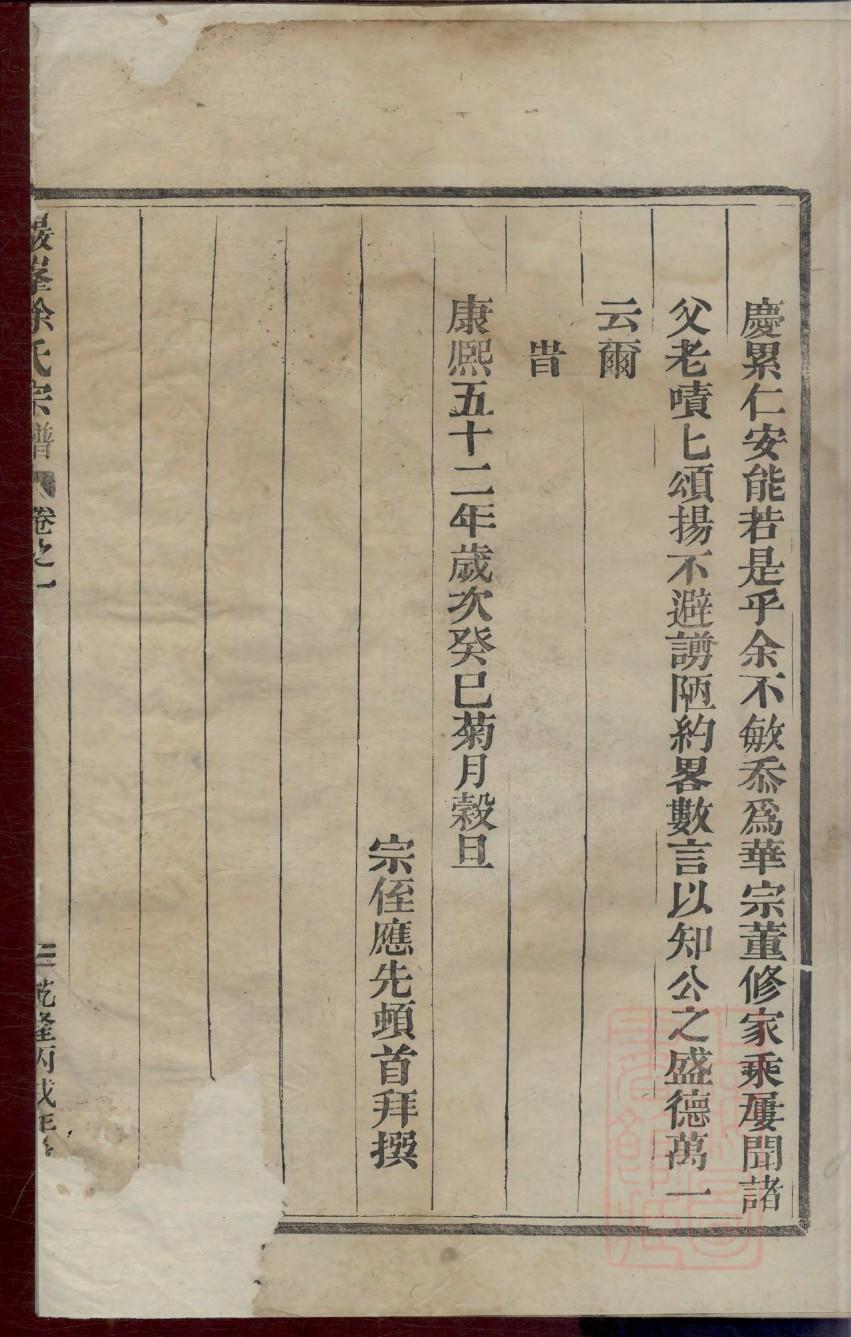 慶累仁安能若是乎余不敏忝爲華宗董修家乘屢聞諸
父老嘖匕頌揚不避謭陋約畧數言以知公之盛德萬一
云爾
旹
康熈五十二年歲次癸巳菊月穀旦
宗侄應先頓首拜撰
巖峯徐氏宗譜 卷之一 三 乾隆丙戌年